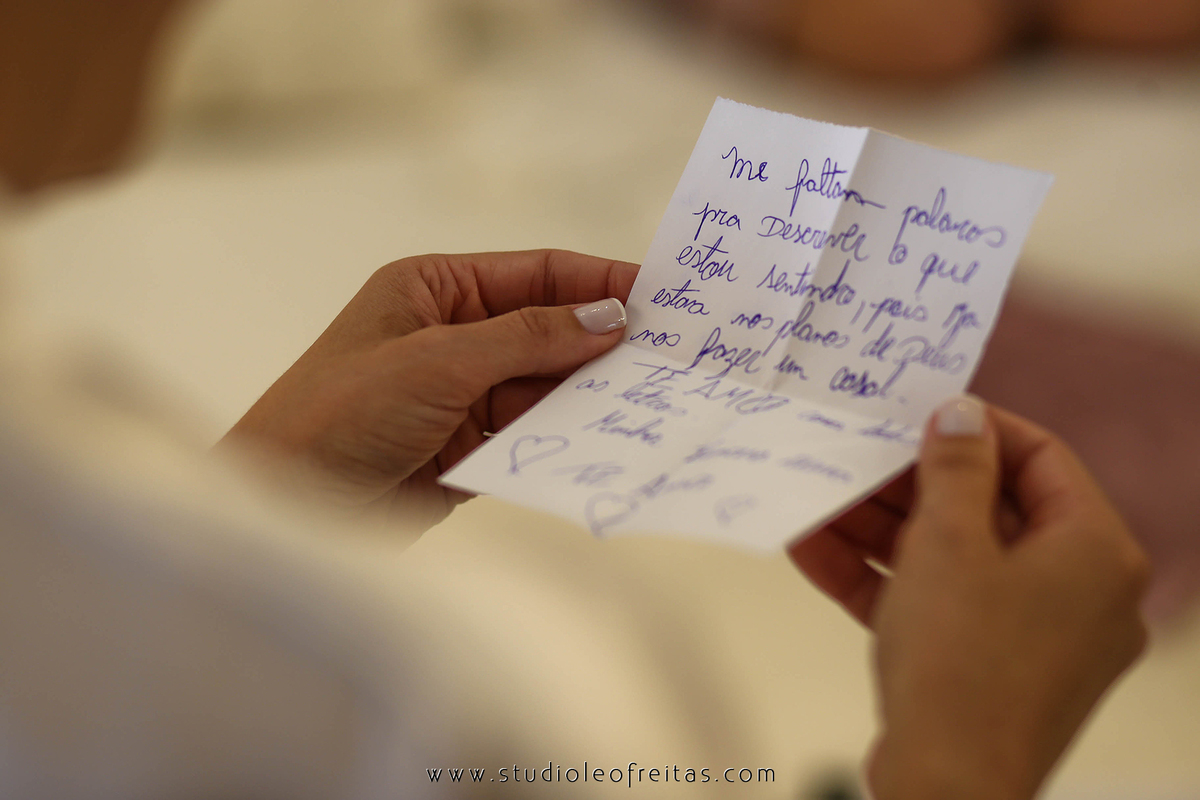 Me faltam palavras
pra Descrever o que
estou sentindo, pois ja
estava nos planos de Deus
nos fazer um casal.
TE AMO com todas
as letras.
Minha
Te Amo
www.studioleofreitas.com